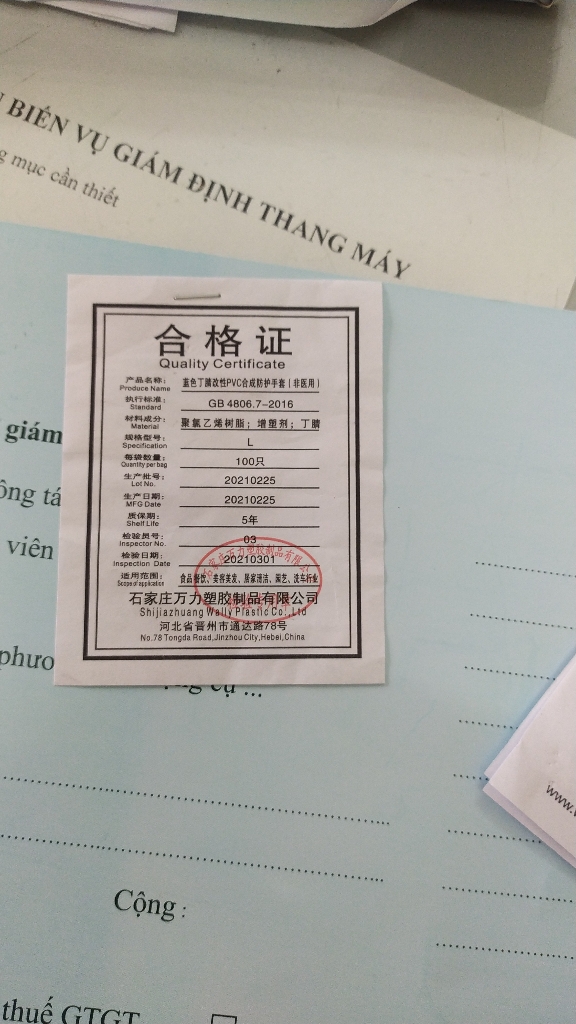 BIÊN VỤ GIÁM ĐỊNH THANG MÁY
mục cần thiết
合格证
Quality Certificate
产品名称: 蓝色丁腈改性PVC合成防护手套(非医用)
Produce Name
执行标准: GB 4806.7-2016
Standard
材料成分: 聚氯乙烯树脂；增塑剂；丁腈
Material
规格型号: L
Specification
每袋数量: 100只
Quantity per bag
生产批号: 20210225
Lot No.
生产日期: 20210225
MFG Date
质保期: 5年
Shelf Life
检验员号: 03
Inspector No.
检验日期: 20210301
Inspection Date
适用范围: 食品餐饮、美容美发、居家清洁、园艺、洗车行业
Scope of application
石家庄万力塑胶制品有限公司
Shijiazhuang Wally Plastic Co.,Ltd
河北省晋州市通达路78号
No.78 Tongda Road,Jinzhou City,Hebei,China
石家庄万力塑胶制品有限公
giám
viên
Cộng :
thuế GTGT
www.